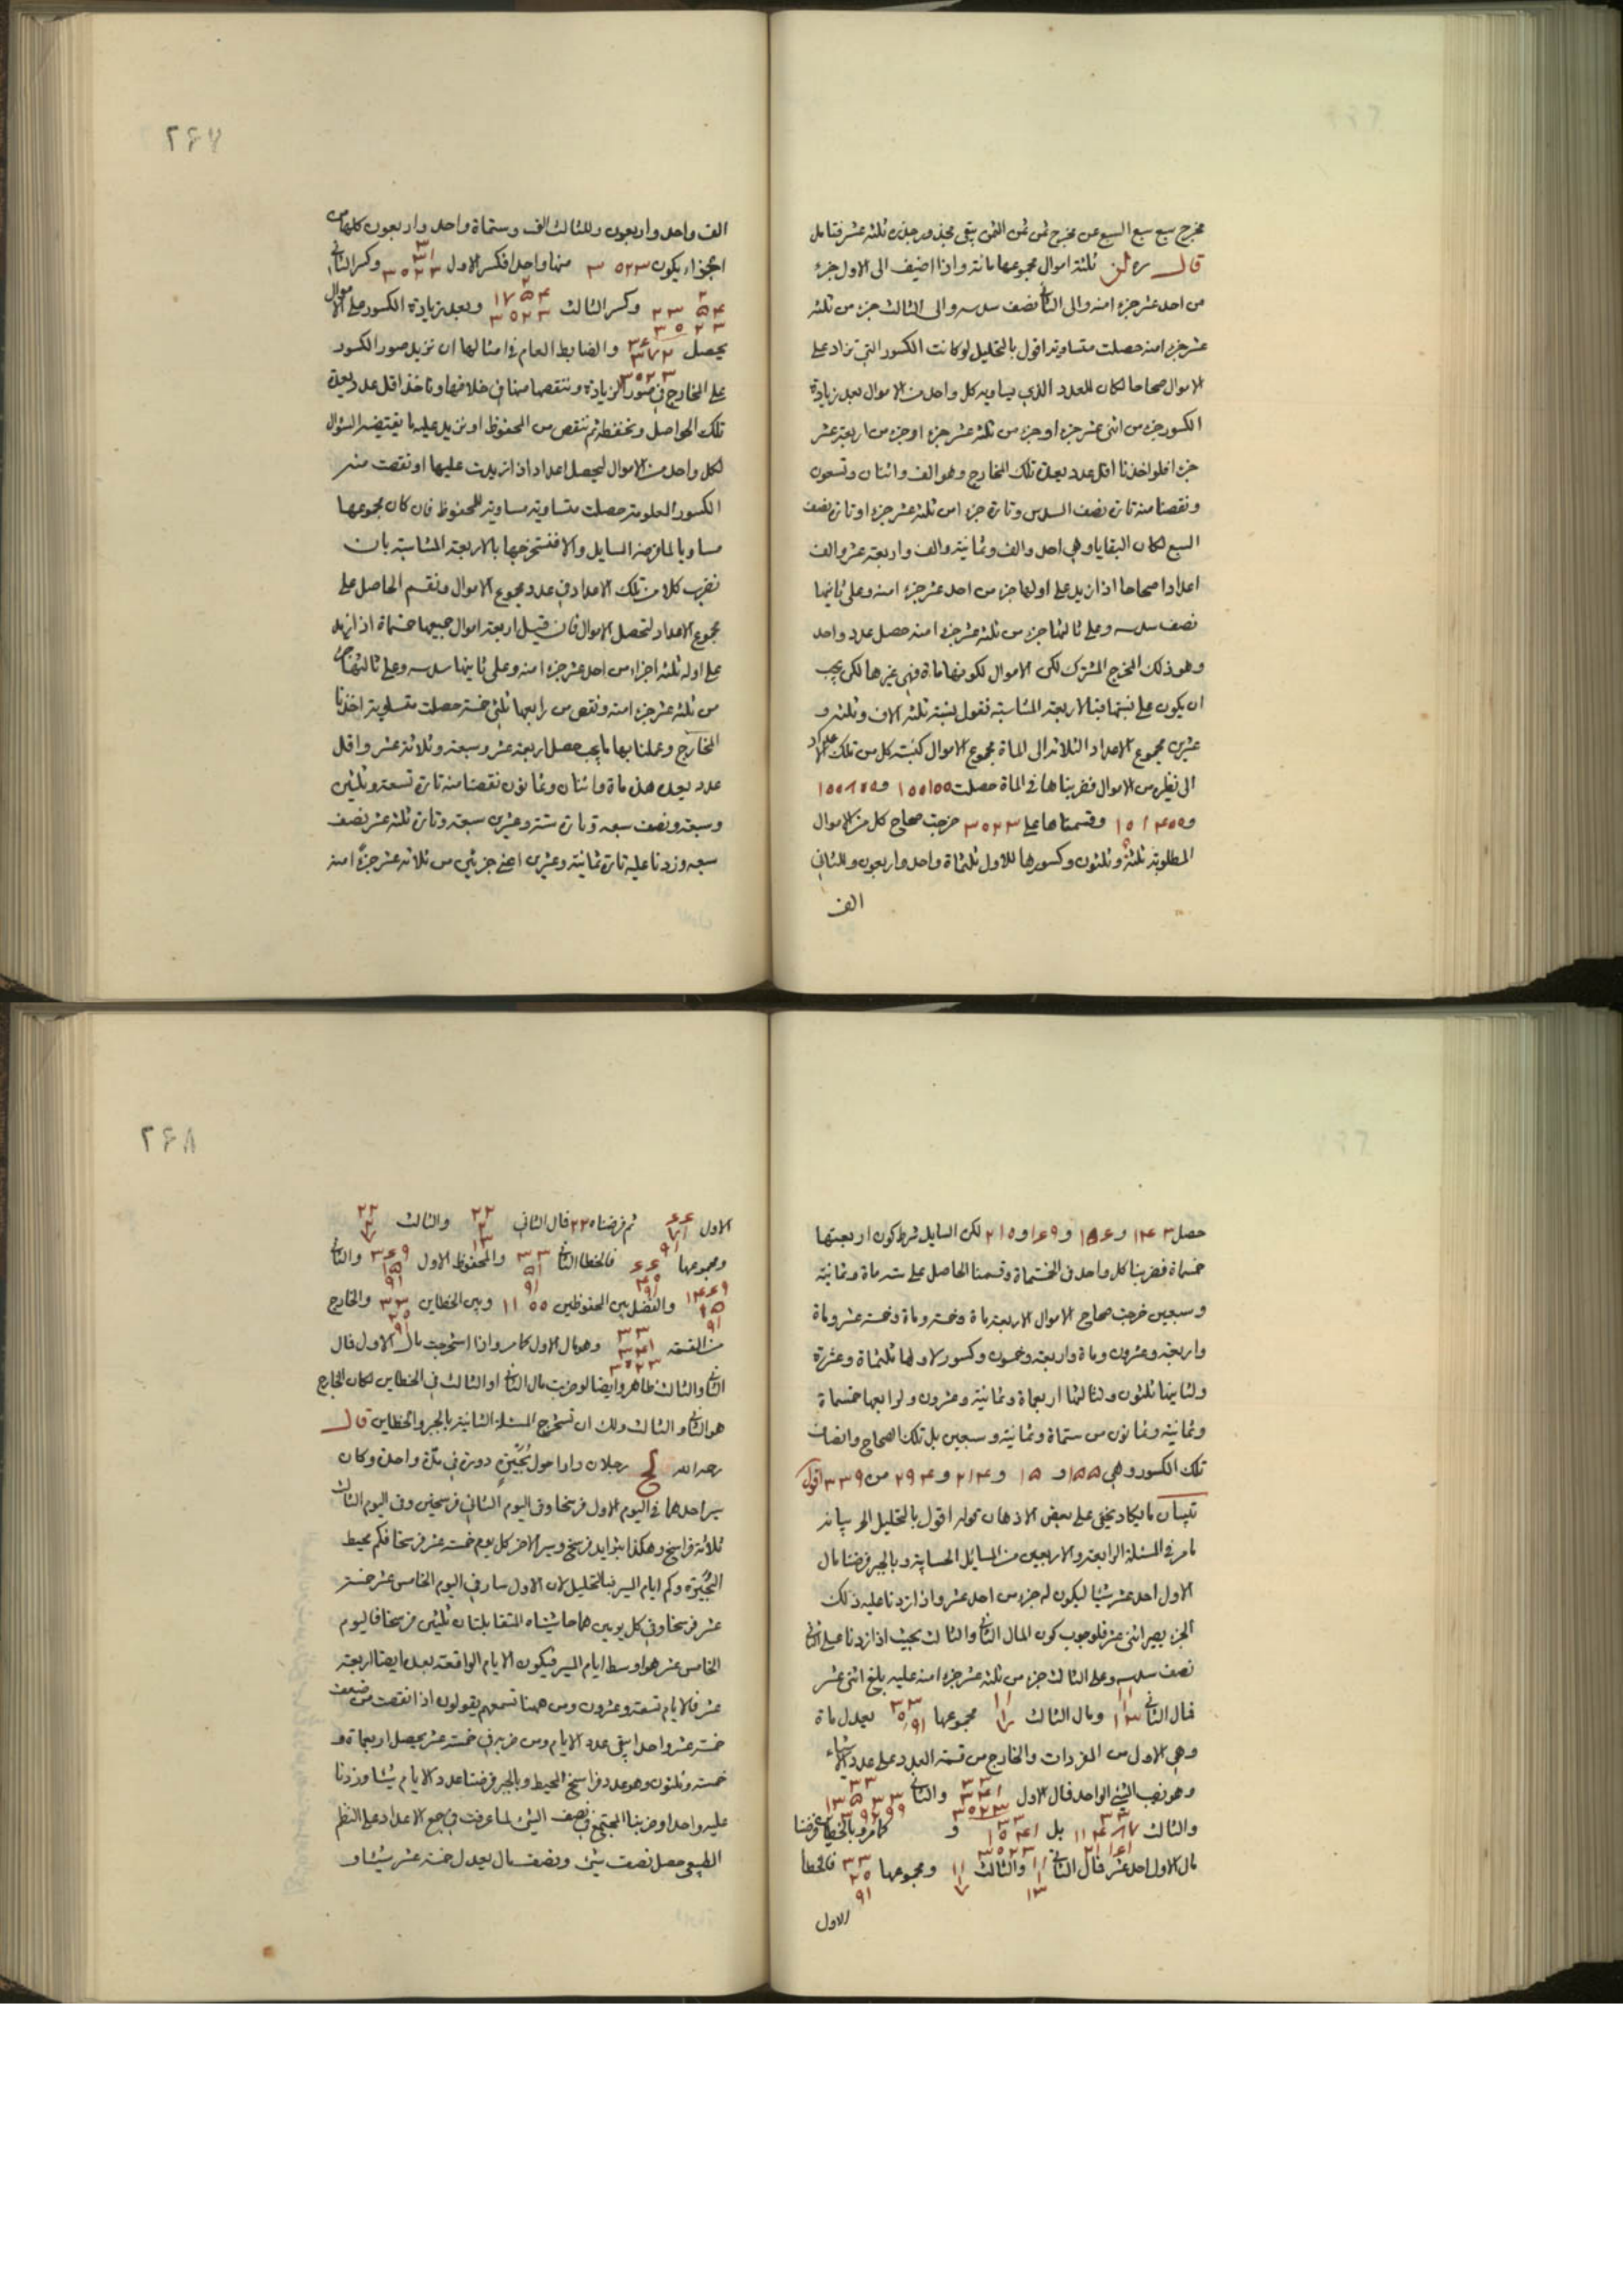 مخرج سبع سبع السبع عن مخرج ثمن ثمن الثمن يبقى مجذور جذره ثلثة عشر فتامل
قال ره لن ثلثة اموال مجموعها مائة واذا اضيف الى الاول جزء
من احد عشر جزءا منه والى الثاني نصف سدسه والى الثالث جزء من ثلثة
عشر جزءا منه حصلت متساوية اقول بالتحليل لو كانت الكسور التي تزاد على
الاموال صحاحا لكان للعدد الذي يساويه كل واحد من الاموال بعد زيادة
الكسور جزء من اثنى عشر جزء او جزء من ثلثة عشر جزء او جزء من اربعة عشر
جزءا فلو اخذنا اقل عدد يعده تلك المخارج وهو الف واثنان وتسعون
ونقصنا منه تارة نصف السدس وتارة جزءا من ثلثة عشر جزءا وتارة نصف
السبع لكان البقايا وهي احد والف وثمانية والف واربعة عشر والف
اعدادا صحاحا اذا زيد على اولها جزء من احد عشر جزءا منه وعلى ثانيها
نصف سدسه وعلى ثالثها جزء من ثلثة عشر جزءا منه حصل عدد واحد
وهو ذلك المخرج المشترك لكن الاموال لكونها مائة فهي غيرها لكن يجب
ان يكون على نسبتها فبالاربعة المتناسبة فنقول نسبة ثلثة الاف وثلثة و
عشرين مجموع الاعداد الثلاثة الى المائة مجموع الاموال كنسبة كل من تلك الاعداد
الى نظيره من الاموال فضربناها في المائة حصلت ١٠٠١٠٠ و١٠٠٨٠٠
و١٠١٤٠٠ وقسمناها على ٣٠٢٣ خرجت صحاح كل من الاموال
المطلوبة ثلثة وثلثون وكسورها للاول ثلثمائة واحد واربعون وللثاني
الف
٢٤٧
الف واحد واربعون وللثالث الف وستمائة واحد واربعون كلها من
اجزاء يكون ٣٠٢٣ منها واحدا فكسر الاول وكسر الثاني
وكسر الثالث وبعد زيادة الكسور على الاموال
يحصل والضابط العام في امثالها ان نزيد صور الكسور
على المخارج في صور الزيادة وننقصها منها في خلافها وناخذ اقل عدد يعده
تلك الحواصل ونحفظه ثم ننقص من المحفوظ او نزيد عليه ما يقتضيه السؤال
لكل واحد من الاموال ليحصل اعداد اذا زيدت عليها او نقصت منه
الكسور المعلومة حصلت متساوية مساوية للمحفوظ فان كان مجموعها
مساويا لما فرضه السايل والا فنستخرجها بالاربعة المتناسبة بان
نضرب كلا من تلك الاعداد في عدد مجموع الاموال ونقسم الحاصل على
مجموع الاعداد لتحصل الاموال فان قيل اربعة اموال جميعها خمسمائة اذا زيد
على اوله ثلثة اجزاء من احد عشر جزءا منه وعلى ثانيها سدسه وعلى ثالثها جزء
من ثلثة عشر جزءا منه ونقص من رابعها ثلثي خمسه حصلت متساوية اخذنا
المخارج وعملنا بها ما يجب حصل اربعة عشر وسبعة وثلاثة عشر واقل
عدد يعد هذه مائة واثنان وثمانون نقصنا منه تارة تسعة وثلثين
وسبعه ونصف سبعه وتارة ستة وعشرين سبعه وتارة ثلثة عشر نصف
سبعه وزدنا عليه تارة ثمانية وعشرين اعني جزئين من ثلاثة عشر جزءا منه
حصل ١٤٣ و١٥٦ و١٦٩ و٢١٠ لكن السايل شرط كون اربعتها
خمسمائة فضربنا كل واحد في الخمسمائة وقسمنا الحاصل على ستمائة وثمانية
وسبعين خرجت صحاح الاموال الاربعة مائة وخمسة ومائة وخمسة عشر ومائة
واربعة وعشرون ومائة واربعة وخمسون وكسور لاولها ثلثمائة وعشرة
ولثانيها ثلثون ولثالثها اربعمائة وثمانية وعشرون ولرابعها خمسمائة
وثمانية وثمانون من ستمائة وثمانية وسبعين بل تلك الصحاح وانصاف
تلك الكسور وهي ١٥٥ و ١٥ و٢١٤ و٢٩٤ من ٣٣٩ اقول
تبيان ما يكاد يخفى على بعض الاذهان قوله اقول بالتحليل الخ بيانه
ما مر في المسئلة الرابعة والاربعين من المسايل الحسابية وبالجبر فرضنا مال
الاول احد عشر شيئا ليكون له جزء من احد عشر واذا زدنا عليه ذلك
الجزء يصير اثنى عشر فلوجوب كون المال الثاني والثالث بحيث اذا زدنا على الثاني
نصف سدسه وعلى الثالث جزء من ثلثة عشر جزءا منه عليه بلغ اثنى عشر
فمال الثاني ومال الثالث مجموعها يعدل مائة
وهي الاول من المفردات والخارج من قسمة العدد على عدد الاشياء
وهو نصيب الشيء الواحد فمال الاول والثاني
والثالث بل و كما مر وبالخطاين فرضنا
مال الاول احد عشر فمال الثاني والثالث ومجموعها فالخطأ
الاول
٢٤٨
الاول ثم فرضناه ٢٢ فمال الثاني والثالث
ومجموعها فالخطأ الثاني والمحفوظ الاول والثاني
والفضل بين المحفوظين ١١٠٠ وبين الخطاين والخارج
من القسمة وهو مال الاول كما مر واذا استخرجت مال الاول فمال
الثاني والثالث ظاهر وايضا لو ضربت مال الثاني او الثالث في الخطاين لكان الخارج
هو الثاني والثالث ولك ان تستخرج المسئلة الثانية بالجبر والخطاين قال
رحمه الله لح رجلان دارا حول بحيرة دورة في مدة واحدة وكان
سير احدهما في اليوم الاول فرسخا وفي اليوم الثاني فرسخين وفي اليوم الثالث
ثلاثة فراسخ وهكذا بتزايد فرسخ وسير الاخر كل يوم خمسة عشر فرسخا فكم محيط
البحيرة وكم ايام السير فبالتحليل لان الاول سار في اليوم الخامس عشر خمسة
عشر فرسخا وفي كل يومين هما حاشيتاه المتقابلتان ثلثين فرسخا فاليوم
الخامس عشر هو اوسط ايام السير فيكون الايام الواقعة بعده ايضا اربعة
عشر فالايام تسعة وعشرون ومن ههنا تسمعهم يقولون اذا نقصت من ضعف
خمسة عشر واحدا يبقى عدة الايام ومن ضربه في خمسة عشر يحصل اربعمائة و
خمسة وثلثون وهو عدد فراسخ المحيط وبالجبر فرضنا عدد الايام شيئا وزدنا
عليه واحدا وضربنا المجتمع في نصف الشيء لما عرفت في جمع الاعداد على النظم
الطبيعي حصل نصف شيء ونصف مال يعدل خمسة عشر شيئا و